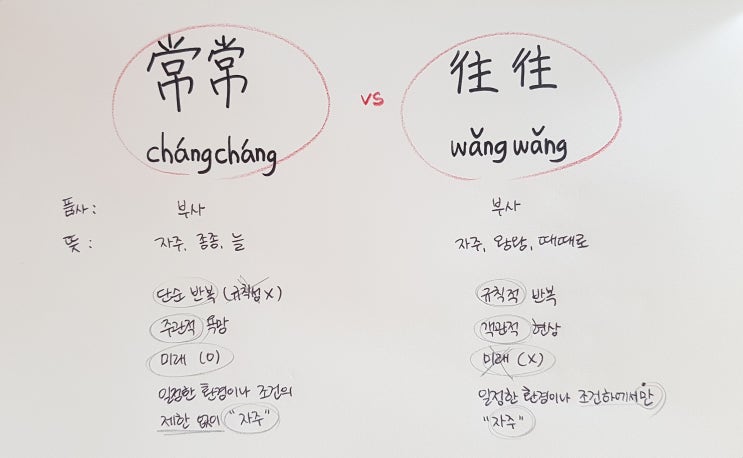 常常 vs 往往
chángcháng wǎngwǎng
품사: 부사 부사
뜻: 자주, 종종, 늘 자주, 왕왕, 때때로
단순 반복 (규칙성 X) 규칙적 반복
주관적 욕망 객관적 현상
미래 (O) 미래 (X)
일정한 환경이나 조건의 일정한 환경이나 조건하에서만
제한 없이 "자주" "자주"